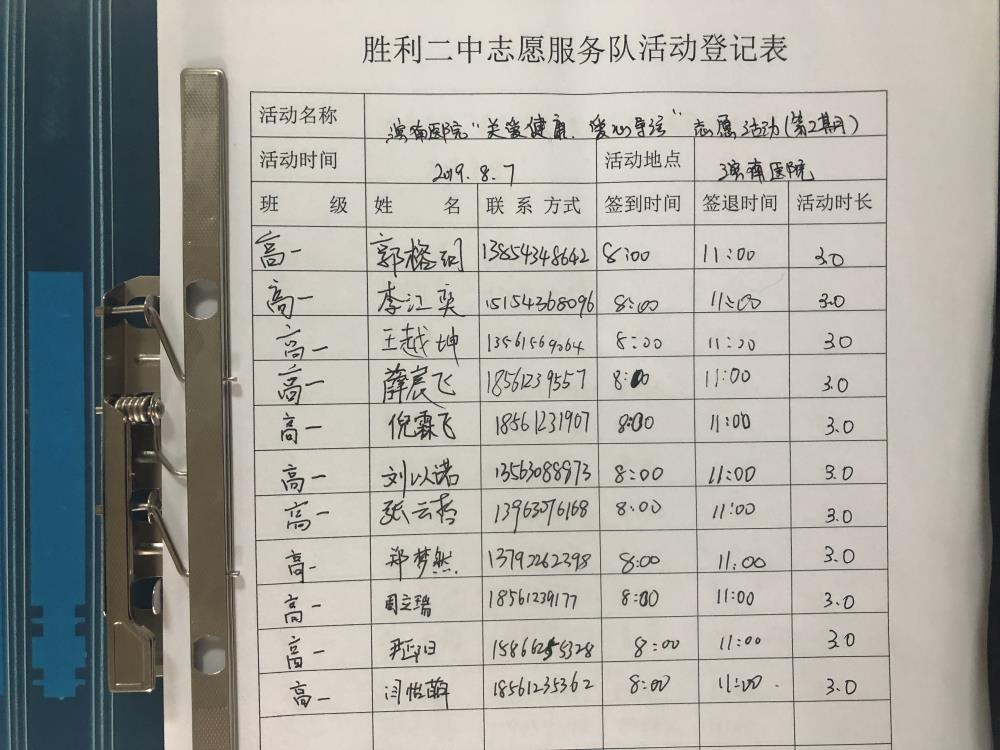 胜利二中志愿服务队活动登记表
活动名称 滨南医院“关爱健康、爱心导诊”志愿活动(第2期)
活动时间 2019.8.7 活动地点 滨南医院
班 级 姓 名 联系方式 签到时间 签退时间 活动时长
高一 郭榕 13854348642 8:00 11:00 3.0
高一 李江奕 15154368096 8:00 11:00 3.0
高一 王越坤 13561569264 8:00 11:00 3.0
高一 薛宸飞 18561239557 8:00 11:00 3.0
高一 倪霖飞 18561231907 8:00 11:00 3.0
高一 刘以诺 13563088973 8:00 11:00 3.0
高一 张云哲 13963076168 8:00 11:00 3.0
高一 郑梦然 13792262398 8:00 11:00 3.0
高一 周立瑞 18561239177 8:00 11:00 3.0
高一 15866255328 8:00 11:00 3.0
高一 闫怡萌 18561235362 8:00 11:00 3.0